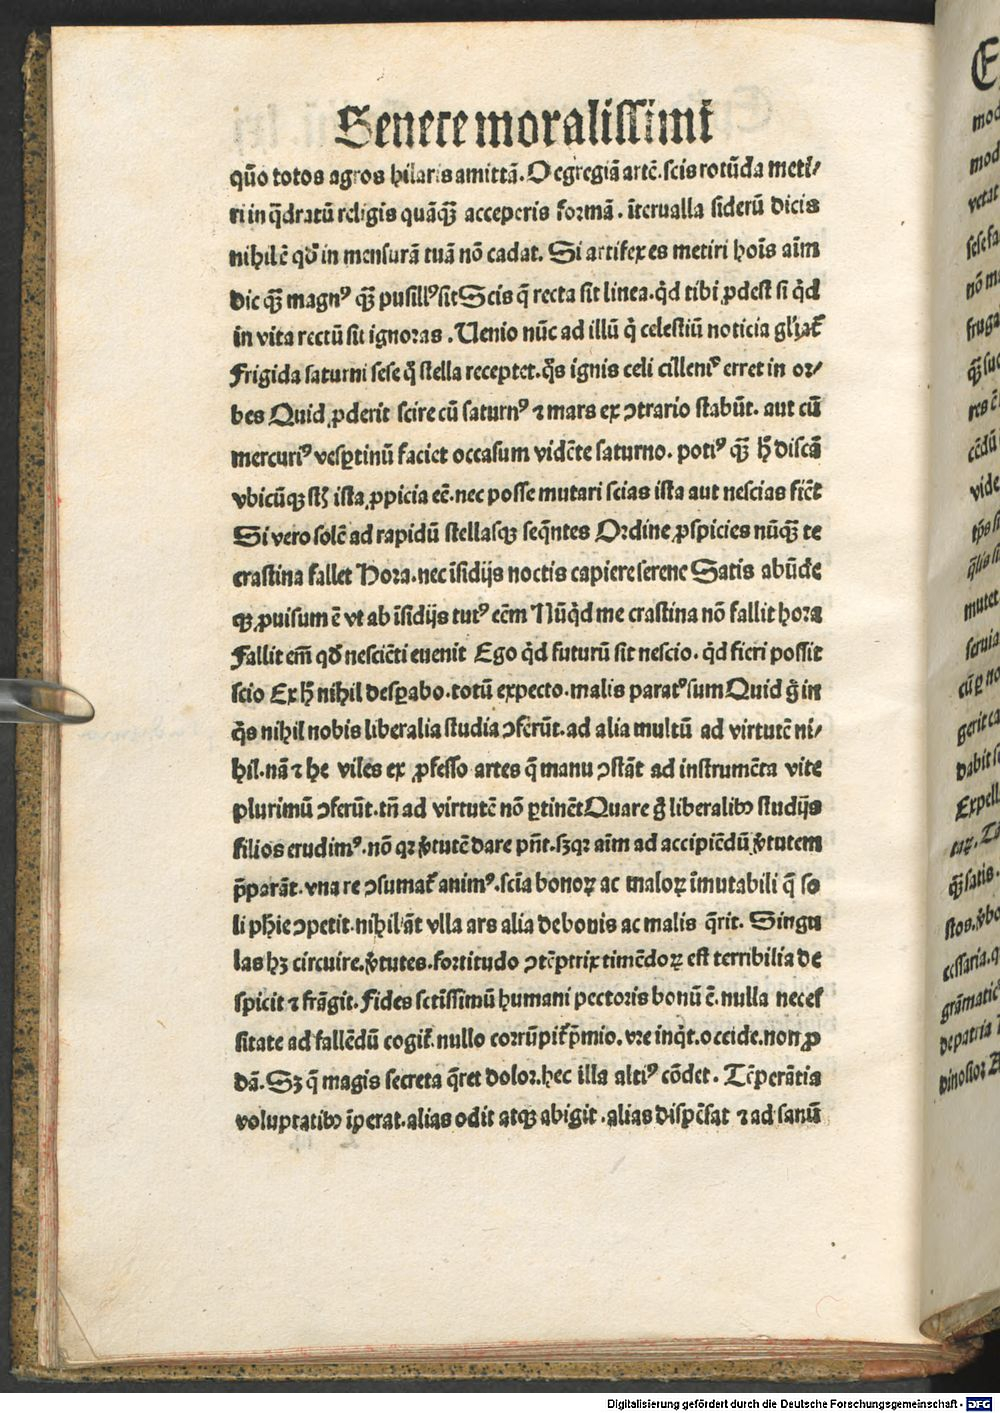 Senece moralissimi
quō totos agros hilaris amittā. O egregiā artē. scis rotūda meti/
ri in q̄dratū religis quāq̄ꝫ acceperis formā. īterualla siderū dicis
nihil ē qđ in mensurā tuā nō cadat. Si artifex es metiri hoīs aīm
Dic q̄ꝫ magnꝰ q̄ꝫ pusillꝰ sit Scis q̄ recta sit linea. qd̓ tibi ꝓdest si qd̓
in vita rectū sit ignoras. Uenio nūc ad illū q̓ celestiū noticia gl̓iat᷑
Frigida saturni sese q̄ stella receptet. q̊s ignis celi cilleniꝰ erret in or/
bes Quid ꝓderit scire cū saturnꝰ ⁊ mars ex ↄtrario stabūt. aut cū
mercuriꝰ vesꝑtinū faciet occasum vidēte saturno. potiꝰ q̄ꝫ ħ discā
vbicūqꝫ sħ ista ꝓpicia eē. nec posse mutari scias ista aut nescias fiēt
Si vero solē ad rapidū stellasqꝫ seq̄ntes Ordine ꝓspicies nūq̄ꝫ te
crastina fallet Hora. nec īsidijs noctis capiere serene Satis abūde
qꝫ ꝓuisum ē vt ab īsidijs tutꝰ eēm Nūqd̓ me crastina nō fallit hora
Fallit em̄ qđ nesciēti euenit Ego qd̓ futurū sit nescio. qd̓ fieri possit
scio Ex ħ nihil desꝑabo. totū expecto. malis paratꝰ sum Quid g̊ in
q̊s nihil nobis liberalia studia ↄferūt. ad alia multū ad virtutē ni/
hil. nā ⁊ he viles ex ꝓfesso artes q̄ manu ↄstāt ad instrumēta vite
plurimū ↄferūt. tn̄ ad virtutē nō ꝑtinēt Quare g̊ liberalibꝰ studijs
filios erudimꝰ. nō qꝛ v̓tutē dare pn̄t. sꝫ qꝛ aīm ad accipiēdū v̓tutem
p̄parāt. vna re ↄsumat᷑ animꝰ. scīa bonoꝝ ac maloꝝ īmutabili q̄ so
li ph̄ie ↄpetit. nihil āt vlla ars alia de bonis ac malis q̄rit. Singu
las hꝫ circuire. v̓tutes. fortitudo ↄtēptrix timēdoꝝ est terribilia de
spicit ⁊ frāgit. Fides sctīssimū humani pectoris bonū ē. nulla neces
sitate ad fallēdū cogit᷑. nullo corrūpit᷑ p̄mio. vre inqt̓. occide. non ꝓ
dā. Sꝫ q̄ magis secreta q̄ret dolor. hec illa altiꝰ cōdet. Tēperātia
voluptatibꝰ īperat. alias odit atqꝫ abigit. alias dispēsat ⁊ ad sanū
Digitalisierung gefördert durch die Deutsche Forschungsgemeinschaft - DFG